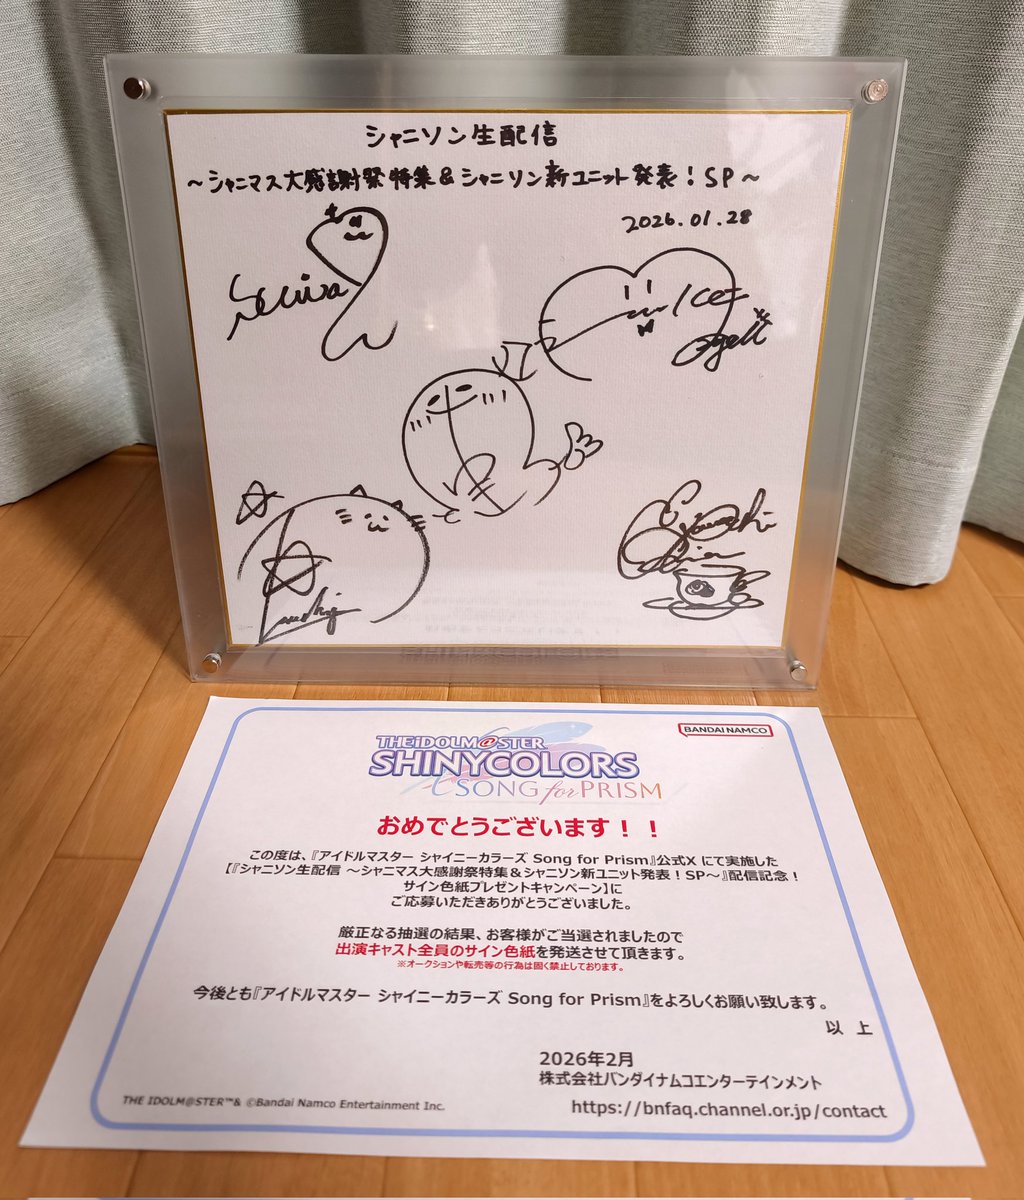 シャニソン生配信
~シャニマス大感謝祭特集&シャニソン新ユニット発表!SP~
2026.01.28
BANDAI NAMCO
THE iDOLM@STER
SHINYCOLORS
SONG for PRISM
おめでとうございます!!
この度は、『アイドルマスター シャイニーカラーズ Song for Prism』公式X にて実施した
【『シャニソン生配信 ~シャニマス大感謝祭特集&シャニソン新ユニット発表!SP~』配信記念!
サイン色紙プレゼントキャンペーン】に
ご応募いただきありがとうございました。
厳正なる抽選の結果、お客様がご当選されましたので
出演キャスト全員のサイン色紙を発送させて頂きます。
※オークションや転売等の行為は固く禁止しております。
今後とも『アイドルマスター シャイニーカラーズ Song for Prism』をよろしくお願い致します。
以 上
2026年2月
株式会社バンダイナムコエンターテインメント
THE IDOLM@STER™& ©Bandai Namco Entertainment Inc.
https://bnfaq.channel.or.jp/contact